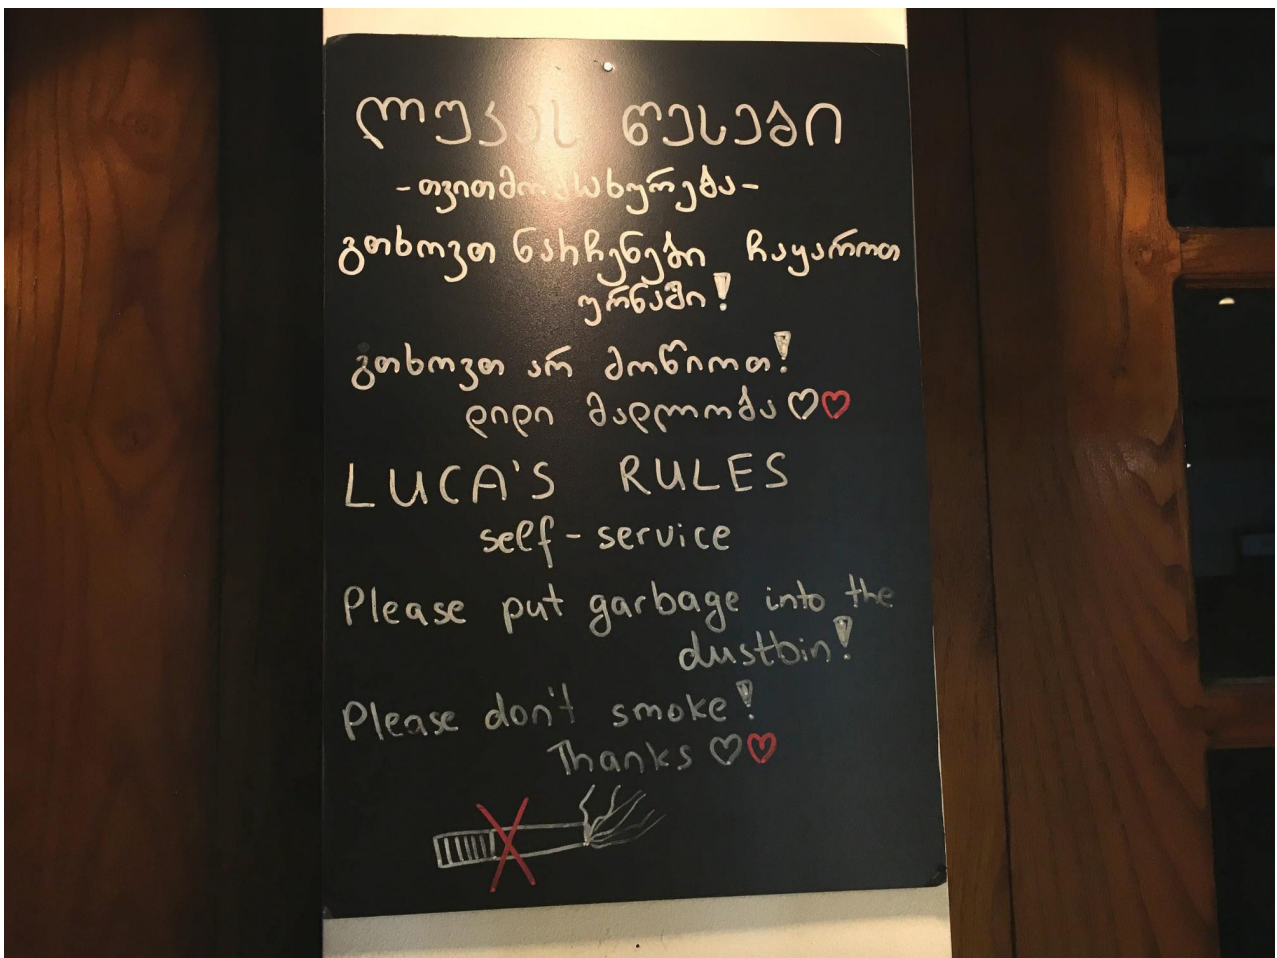 ლუკას წესები
-თვითმომსახურება-
გთხოვთ ნარჩენები ჩაყაროთ
ურნაში!
გთხოვთ არ მოწიოთ!
დიდი მადლობა ♡♡
LUCA'S RULES
self-service
Please put garbage into the
dustbin!
Please don't smoke!
Thanks ♡♡